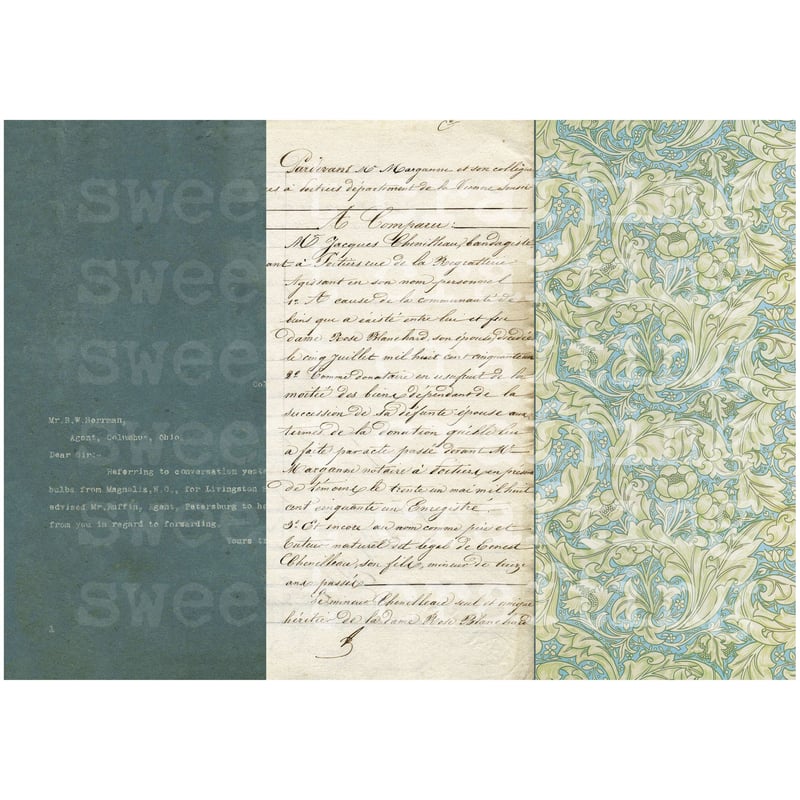 Col
Mr. B. W. Herrman,
Agent, Columbus, Ohio.
Dear Sir:-
Referring to conversation yeste
bulbs from Magnolia, N.C., for Livingston
advised Mr. Ruffin, Agent, Petersburg to ho
from you in regard to forwarding.
Yours tr
1
Pardevant Me Marganne et son collègue
es à Poitiers département de la Vienne soussi
A Comparu:
Mr. Jacques Chenilleau, bandagiste
ant à Poitiers rue de la Regratterie
Agissant en son nom personnel
1o. A cause de la communauté de
biens que a éxisté entre lui et feu
dame Rose Blanchard, son épouse, décédée
le cinq juillet mil huit cent cinquante un
2o. Comme donataire en usufruit de la
moitié des biens dépendant de la
succession de sa défunte épouse aux
termes de la donation quelle lui
a faite par acte passé devant Me
Marganne notaire à Poitiers, en présence
de témoins le trente un mai mil huit
cent cinquante un Enregistré
3o. Et encore au nom comme père et
Tuteur naturel et légal de Ernest
Chenilleau, son fils, mineur de treize
ans passés
Le mineur Chenilleau seul et unique
héritier de la dame Rose Blanchard
sweet
sweet
sweet
sweet
sweet
sweet